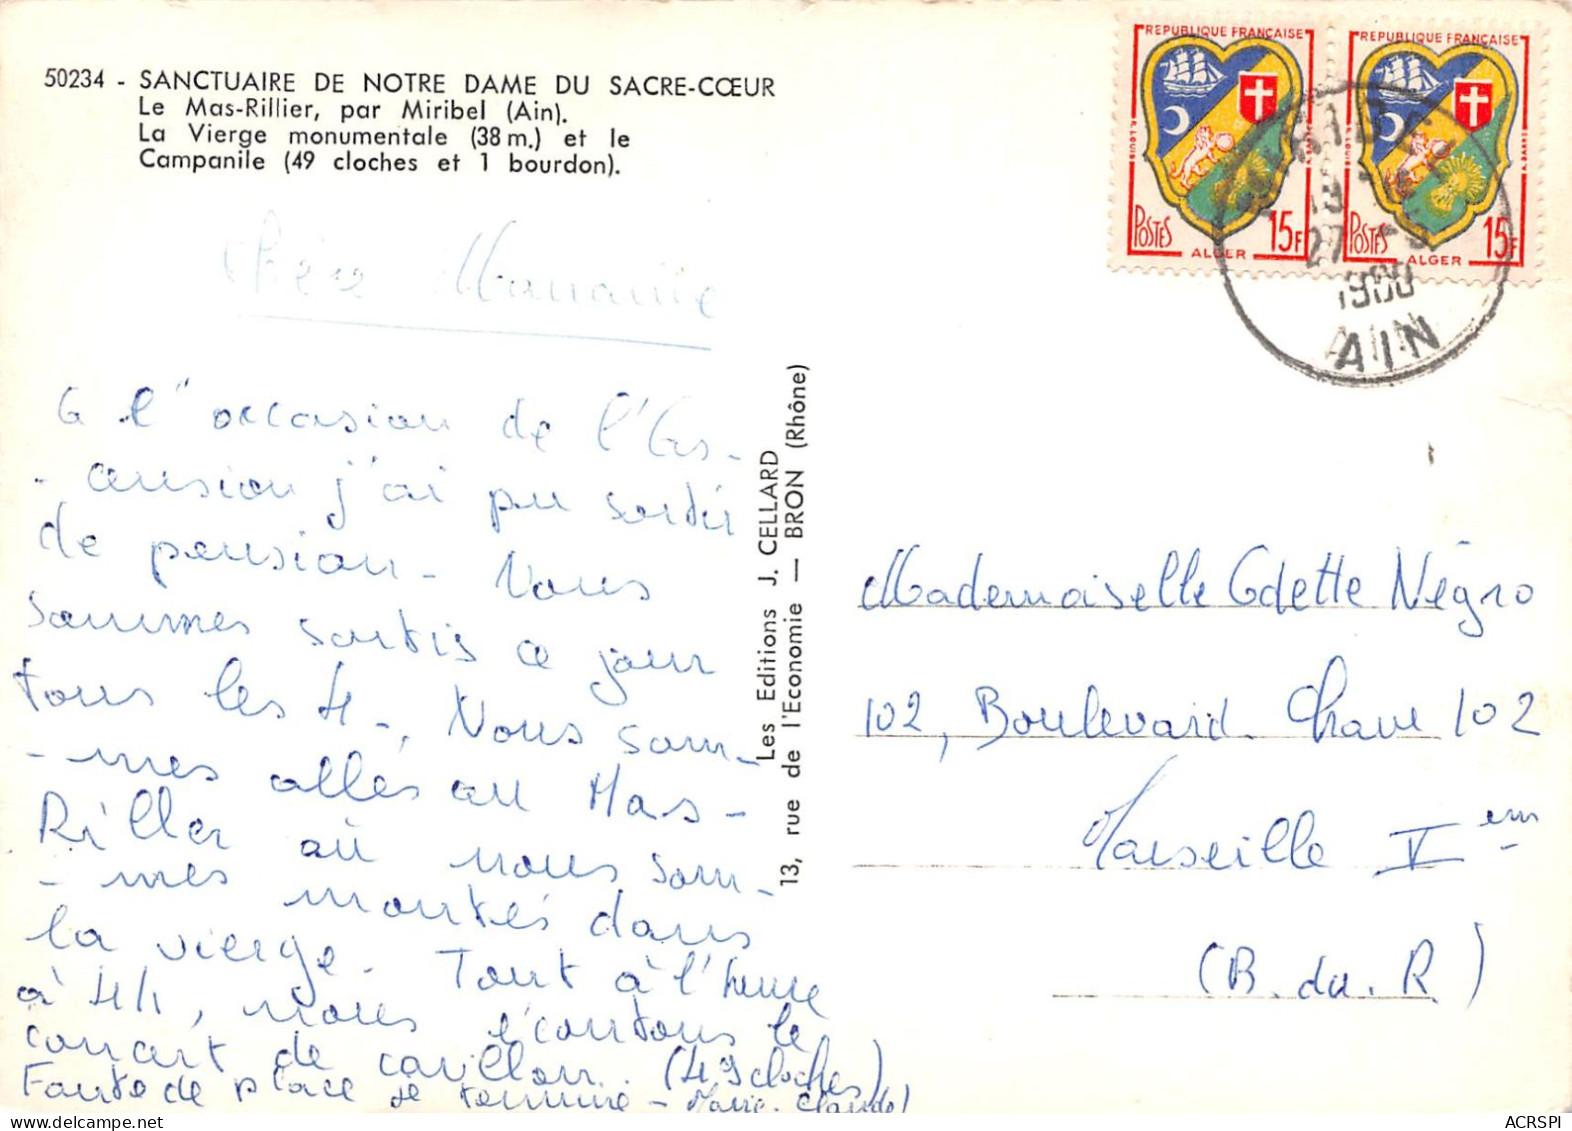 50234 - SANCTUAIRE DE NOTRE DAME DU SACRE-CŒUR
Le Mas-Rillier, par Miribel (Ain).
La Vierge monumentale (38 m.) et le
Campanile (49 cloches et 1 bourdon).
REPUBLIQUE FRANÇAISE
POSTES 15F
ALGER
REPUBLIQUE FRANÇAISE
POSTES 15F
ALGER
27
1960
AIN
Chère
A l'occasion de l'As-
- cension j'ai pu sortir
de pension - Nous
sommes sortis ce jour
tous les 4 -, Nous som-
- mes allés au Mas -
Riller où nous som-
- mes montés dans
la vierge. Tout à l'heure
à 4H, nous écoutons le
concert de carillon. (49 cloches)
Faute de place je termine - Marie-Claude!
Les Editions J. CELLARD
13, rue de l'Economie — BRON (Rhône)
Mademoiselle Odette Négro
102, Boulevard Chave 102
Marseille V em
(B. du. R)
ACRSPI